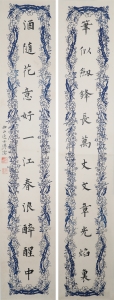 筆似劍鋒長萬丈文章光焰裏
酒隨花意好一江春浪醉醒中